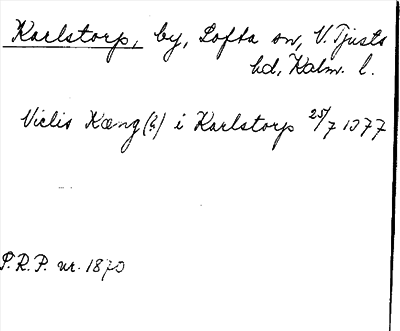 Karlstorp, by, Lofta sn, V. Tjusts
hd, Kalm. l.
Viclis Kæng (?) i Karlstorp 25/7 1377
P.R.P. nr. 1870